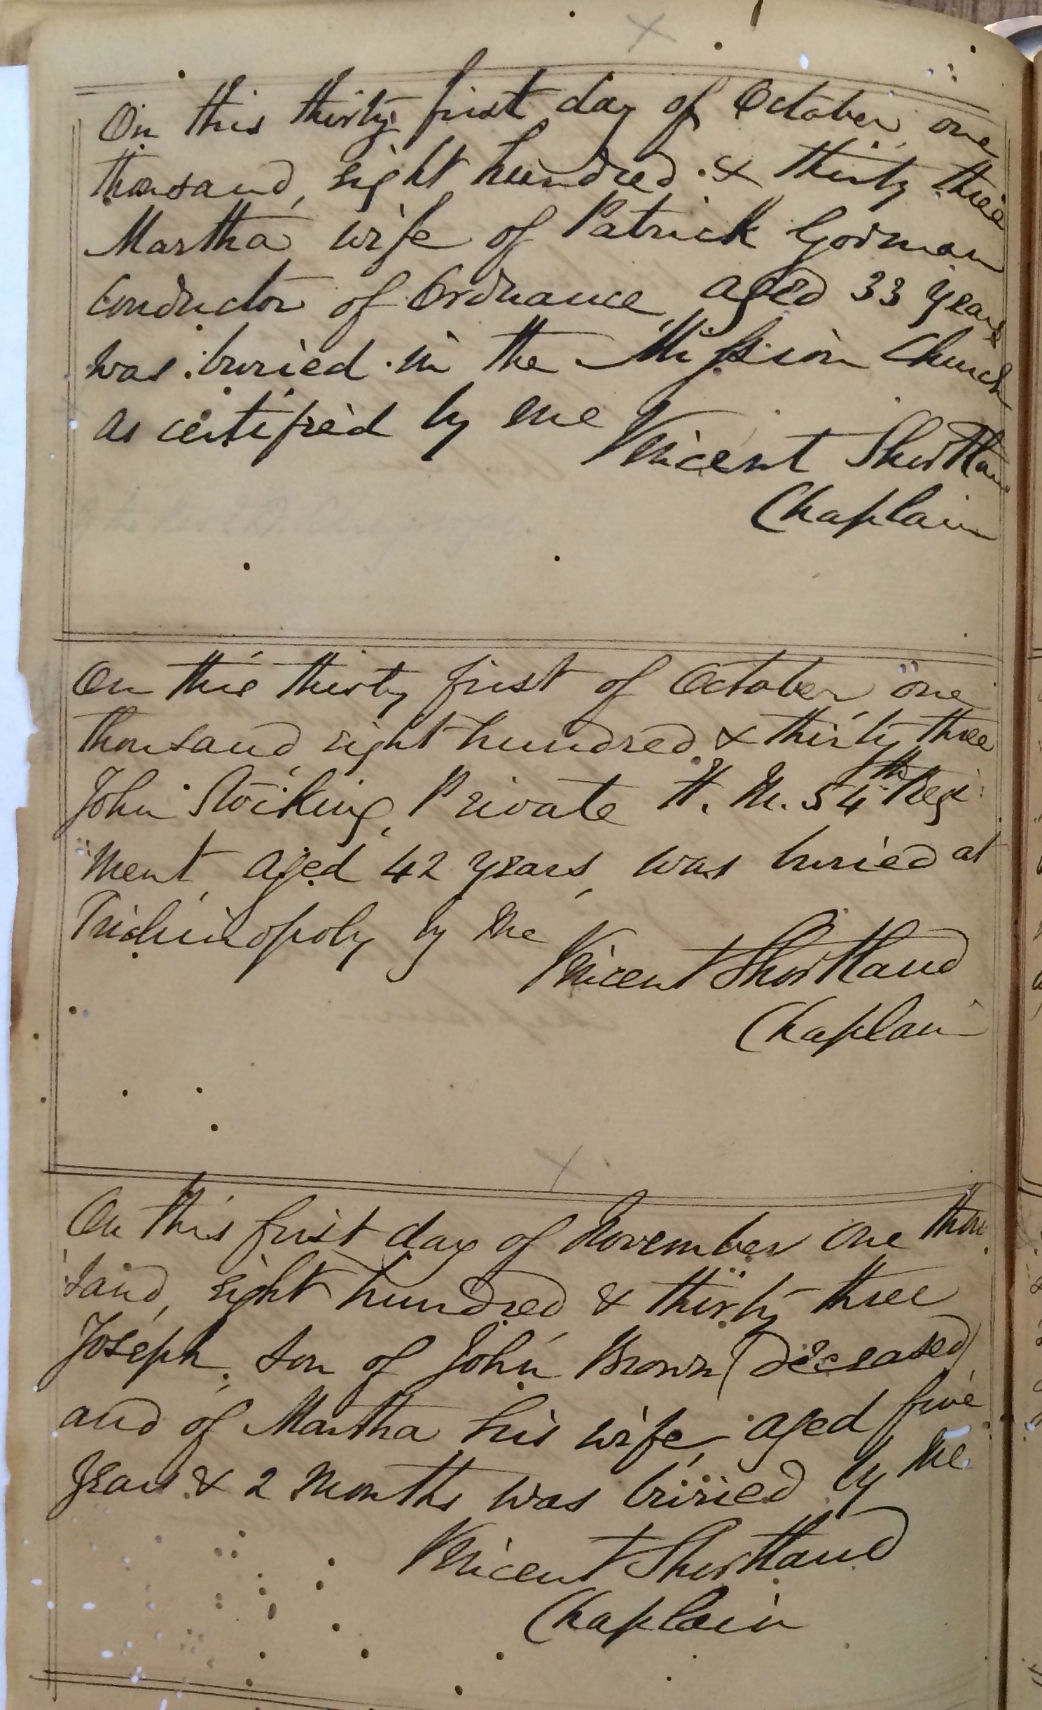 On this thirty first day of October, one
thousand, eight hundred & thirty three
Martha wife of Patrick Gorman
Conductor of Ordnance aged 33 years
was buried in the Mission Church
as certified by me
Vincent Shortland
Chaplain
On this thirty first of October, one
thousand, eight hundred & thirty three
John Private H. M. 54th Regi
ment, aged 42 years, was buried at
Trichinopoly by me
Vincent Shortland
Chaplain
On this first day of November One thou
sand, eight hundred & thirty three
Joseph, son of John Brown (deceased)
and of Martha his wife, aged five
years & 2 months was buried by me
Vincent Shortland
Chaplain